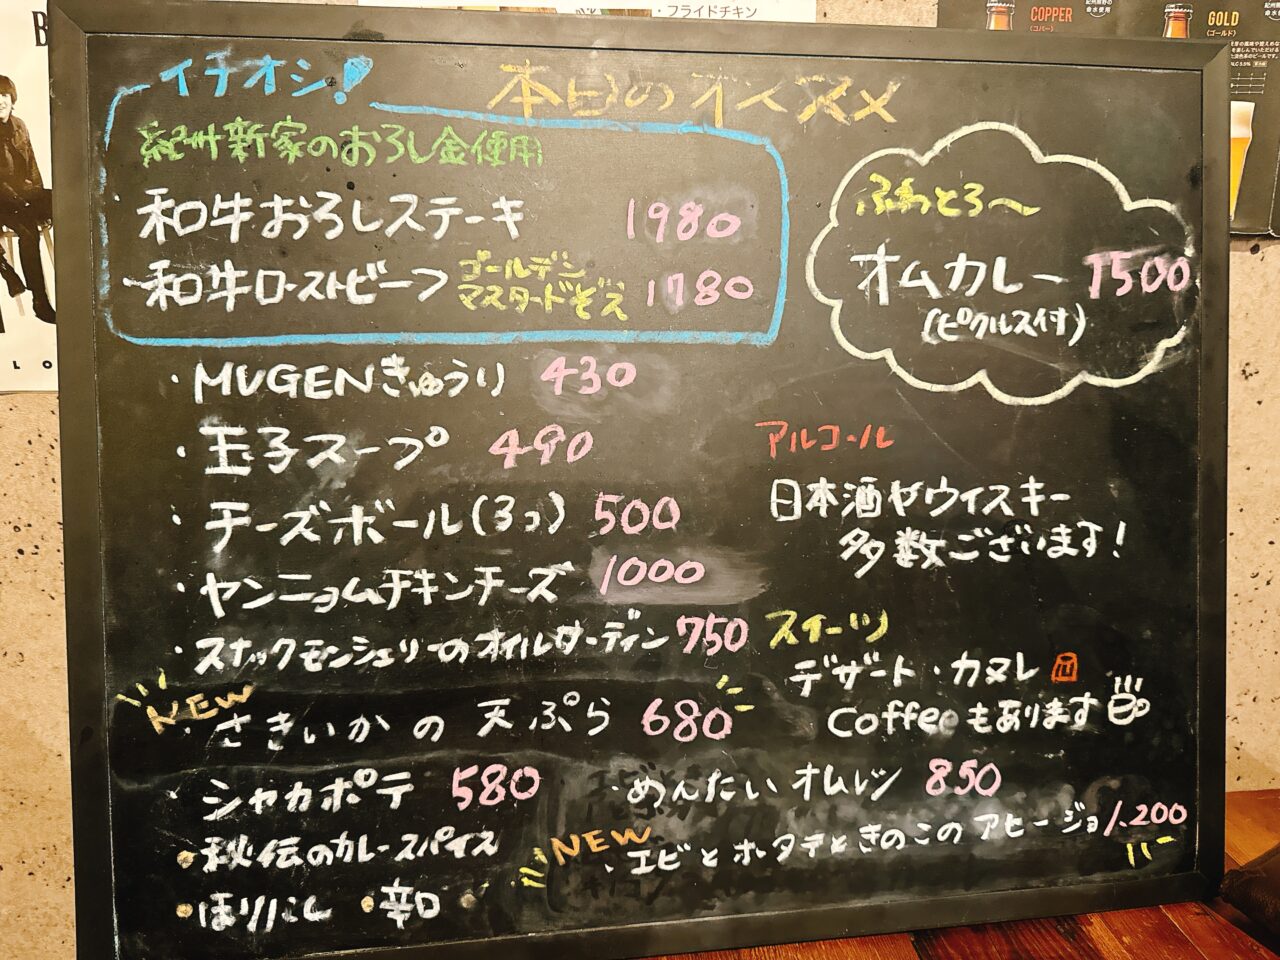 ・フライドチキン
COPPER
(コパー)
GOLD
(ゴールド)
イチオシ!
本日のオススメ
紀州新家のおろし金使用
・和牛おろしステーキ 1980
・和牛ローストビーフ ゴールデンマスタードぞえ 1780
ふわとろ〜
オムカレー 1500
(ピクルス付)
・MUGENきゅうり 430
・玉子スープ 490
・チーズボール(3つ) 500
・ヤンニョムチキンチーズ 1000
・スナックモンシェリーのオイルサーディン 750
NEW
・さきいかの天ぷら 680
・シャカポテ 580
・秘伝のカレースパイス
・ほりにし ・辛口
アルコール
日本酒やウイスキー
多数ございます!
スイーツ
デザート・カヌレ
Coffeeもあります
・めんたいオムレツ 850
NEW
・エビとホタテときのこのアヒージョ 1.200